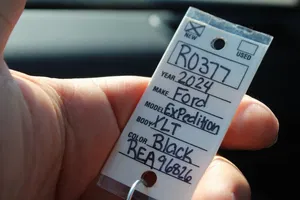 NEW USED
R0377
YEAR 2024
MAKE Ford
MODEL Expedition
BODY XLT
COLOR Black
REA96826